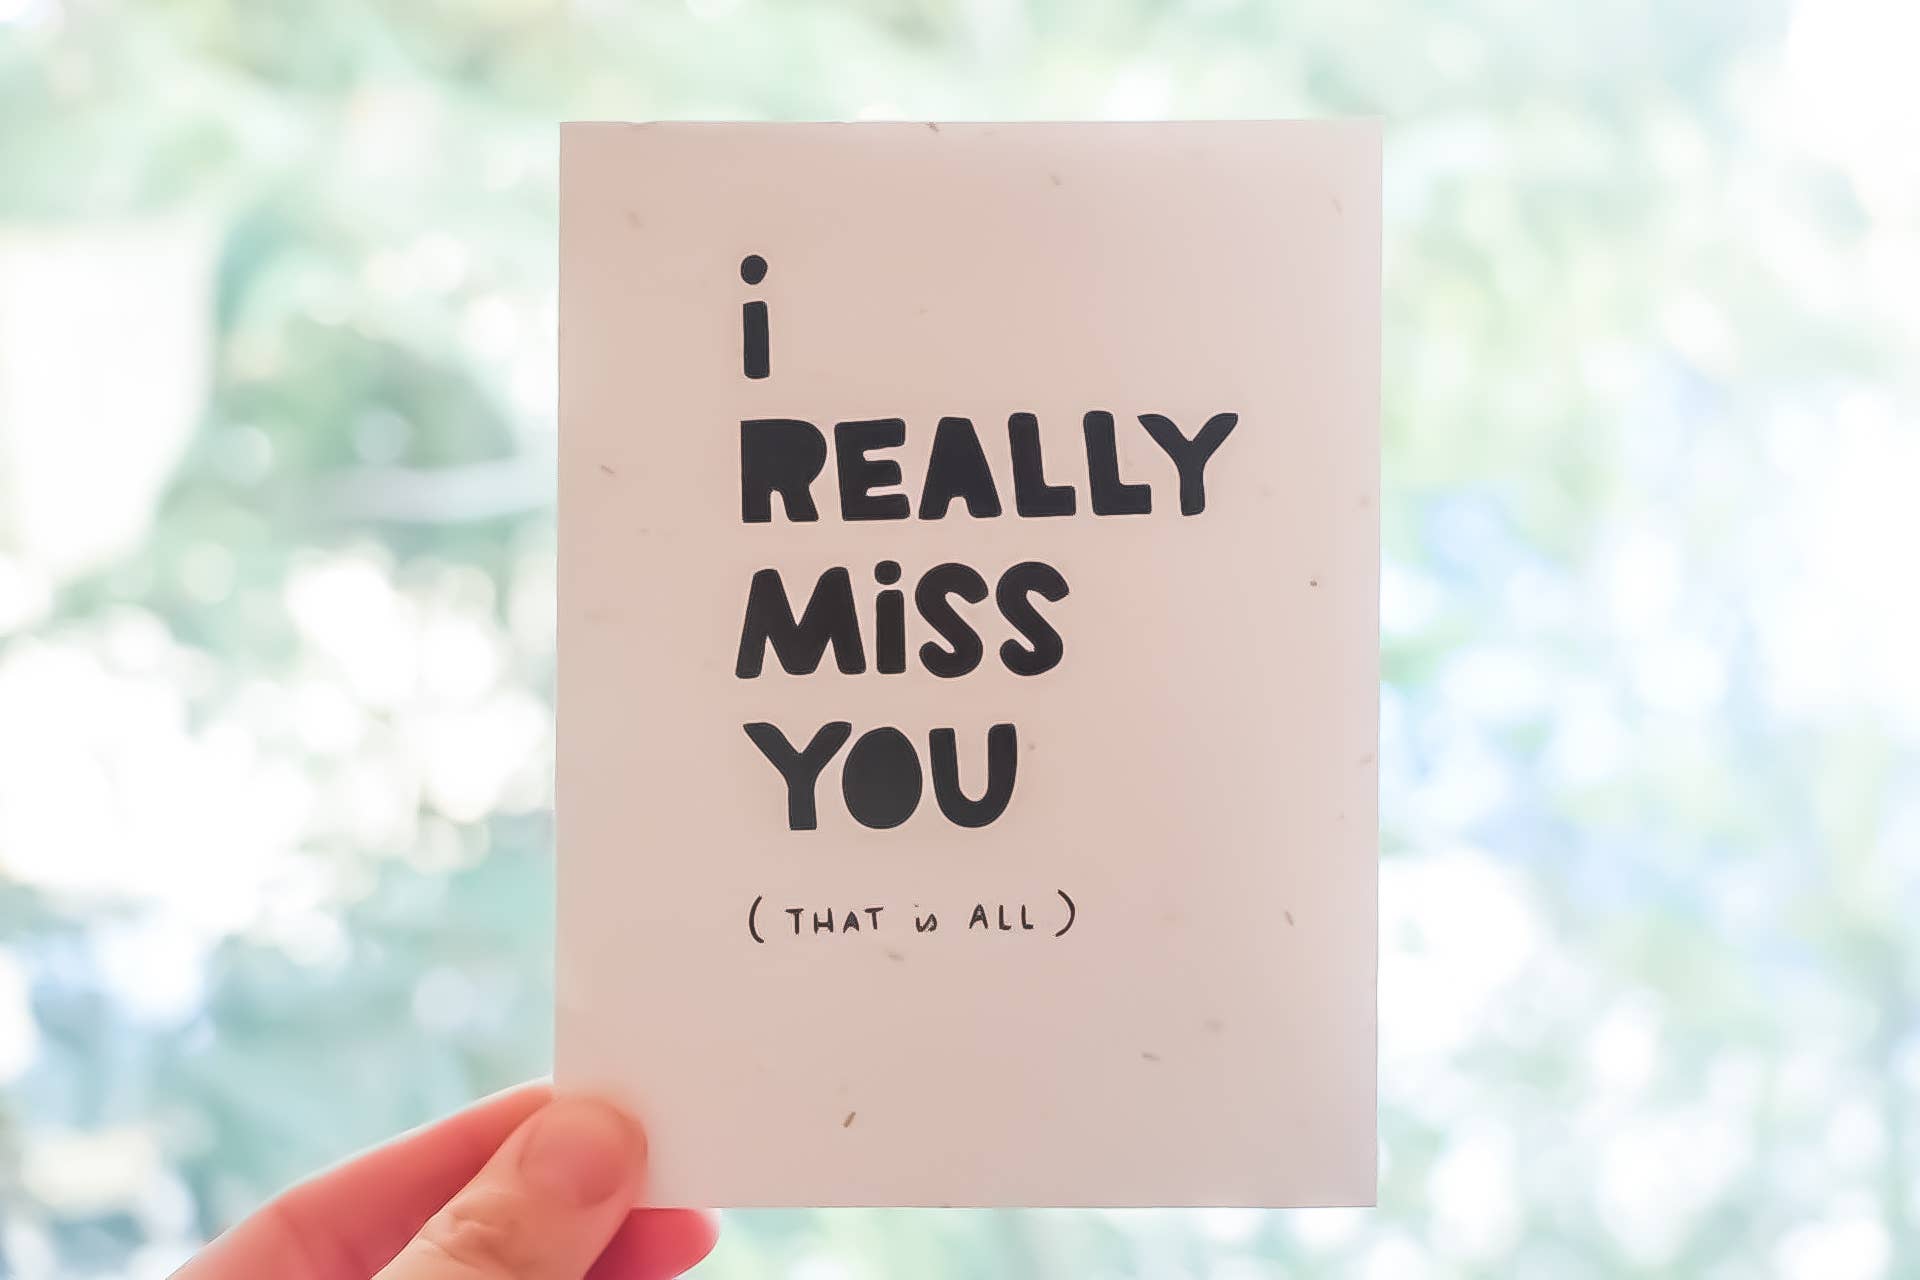 i
REALLY
MiSS
YOU
( THAT is ALL )